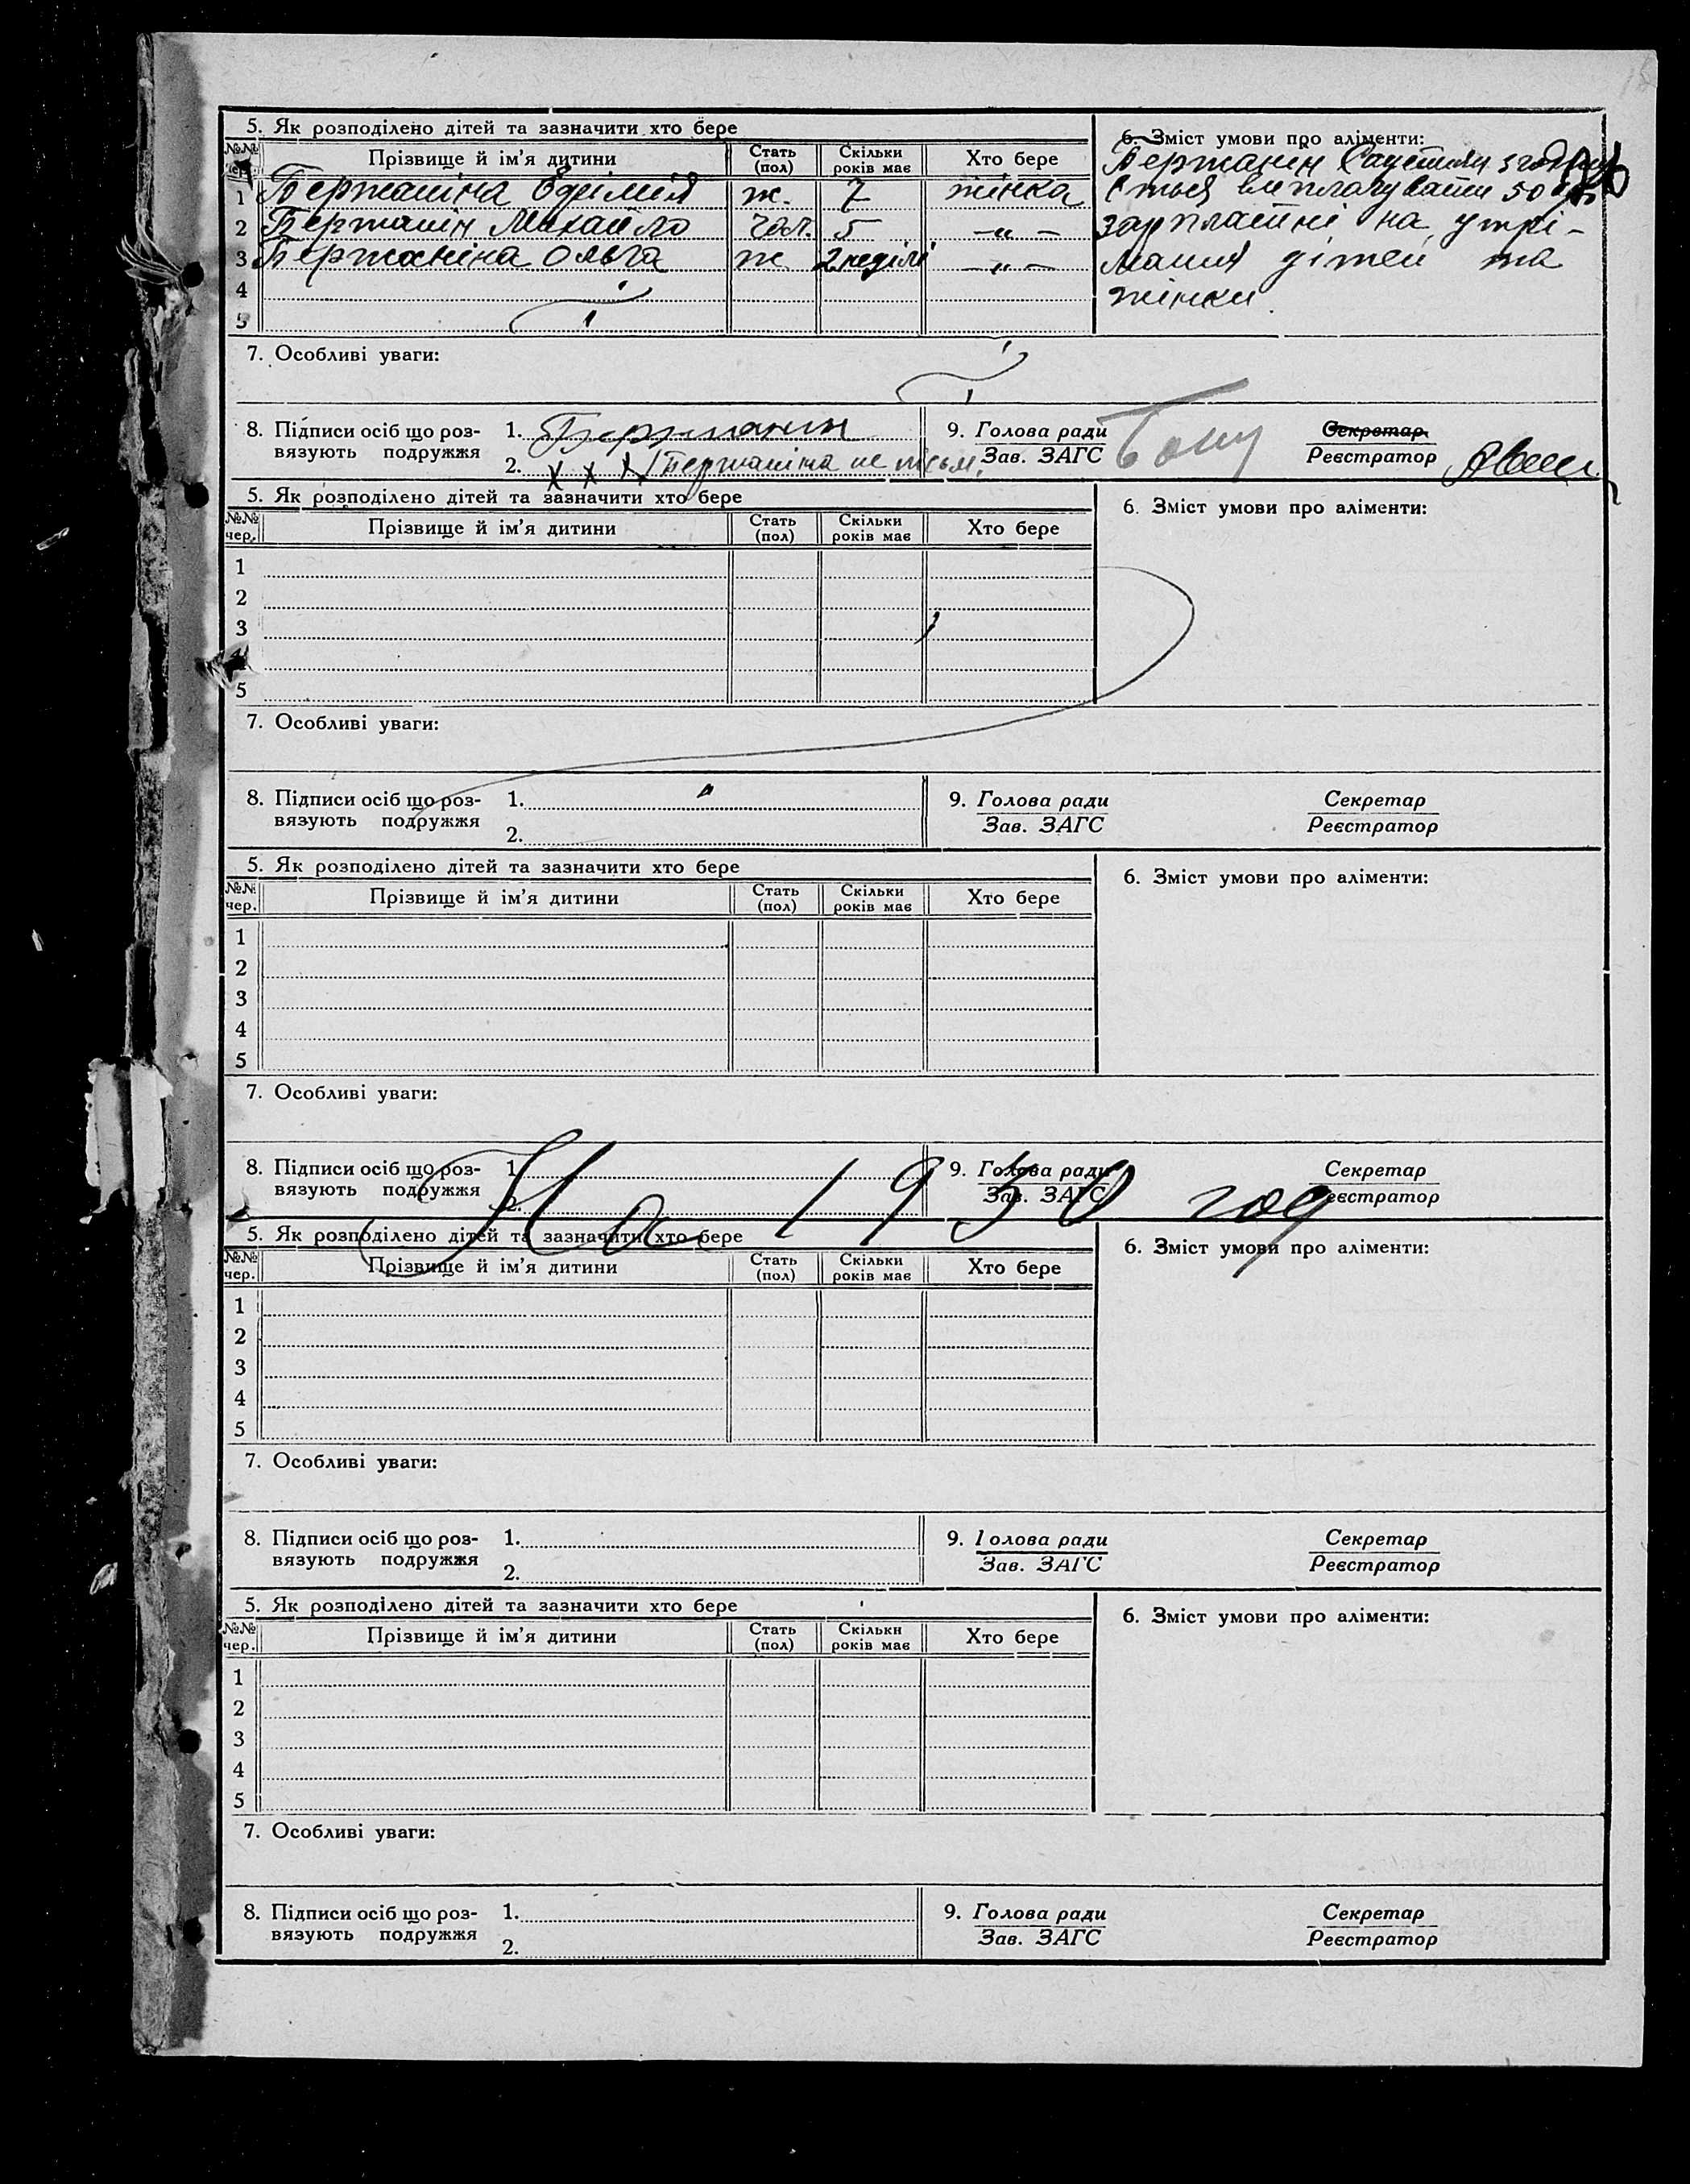 5. Як розподілено дітей та зазначити хто бере
6. Зміст умови про аліменти:
№№ чер. Прізвище й ім'я дитини Стать (пол) Скільки років має Хто бере
1 Бержаніна Ефімія ж. 7 жінка
2 Бержанін Михайло чол. 5 —„—
3 Бержаніна Ольга ж 2 неділі —„—
4
5
Бержанін
виплачувати 50
зарплатні на утрі-
мання дітей та
жінки.
7. Особливі уваги:
8. Підписи осіб що роз-
вязують подружжя
1. Бержанин
2. х х х Бержаніна не письм.
9. Голова ради
Зав. ЗАГС
Секретар
Реєстратор
5. Як розподілено дітей та зазначити хто бере
6. Зміст умови про аліменти:
№№ чер. Прізвище й ім'я дитини Стать (пол) Скільки років має Хто бере
1
2
3
5
7. Особливі уваги:
8. Підписи осіб що роз-
вязують подружжя
1.
2.
9. Голова ради
Зав. ЗАГС
Секретар
Реєстратор
5. Як розподілено дітей та зазначити хто бере
6. Зміст умови про аліменти:
№№ чер. Прізвище й ім'я дитини Стать (пол) Скільки років має Хто бере
1
2
3
4
5
7. Особливі уваги:
8. Підписи осіб що роз-
вязують подружжя
1.
2.
9. Голова ради
Зав. ЗАГС
Секретар
Реєстратор
На 1930 год
5. Як розподілено дітей та зазначити хто бере
6. Зміст умови про аліменти:
№№ чер. Прізвище й ім'я дитини Стать (пол) Скільки років має Хто бере
1
2
3
4
5
7. Особливі уваги:
8. Підписи осіб що роз-
вязують подружжя
1.
2.
9. Голова ради
Зав. ЗАГС
Секретар
Реєстратор
5. Як розподілено дітей та зазначити хто бере
6. Зміст умови про аліменти:
№№ чер. Прізвище й ім'я дитини Стать (пол) Скільки років має Хто бере
1
2
3
4
5
7. Особливі уваги:
8. Підписи осіб що роз-
вязують подружжя
1.
2.
9. Голова ради
Зав. ЗАГС
Секретар
Реєстратор